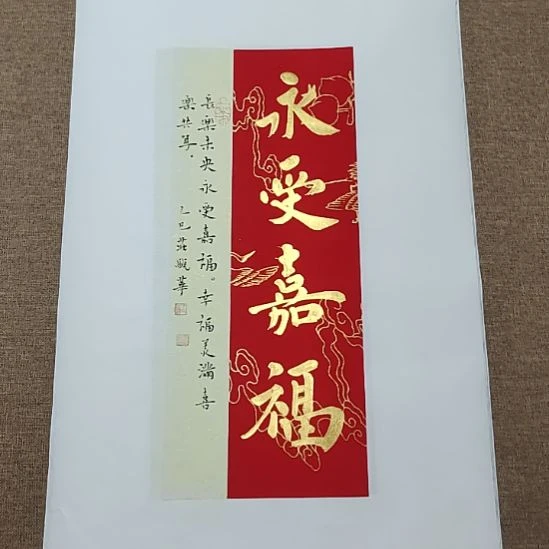 永受嘉福
長樂未央永受嘉福。幸福美滿喜
樂共享。
乙巳莊毓華